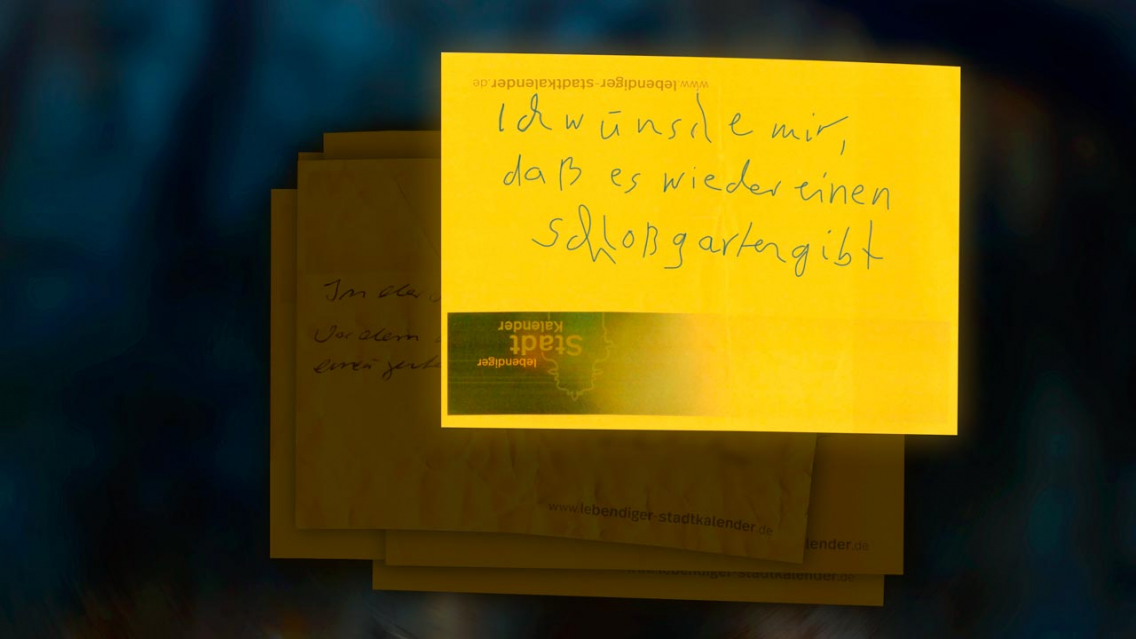 www.lebendiger-stadtkalender.de
Ich wünsche mir,
daß es wieder einen
schloßgarten gibt
lebendiger
Stadt
Kalender
In der
Vor dem
einen
www.lebendiger-stadtkalender.de
lender.de
www.lebendiger-stadtkalender.de